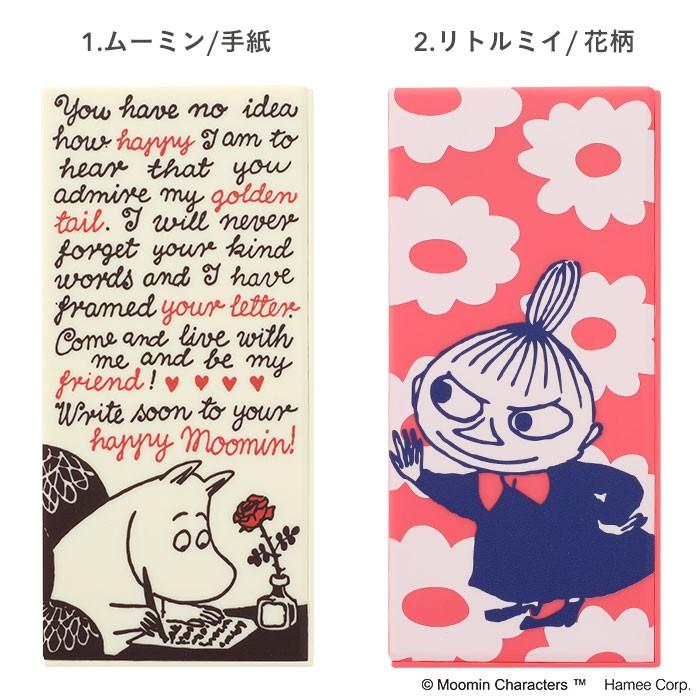 1.ムーミン/手紙
2.リトルミイ/花柄
You have no idea
how happy I am to
hear that you
admire my golden
tail. I will never
forget your kind
words and I have
framed your letter.
Come and live with
me and be my
friend! ♥ ♥ ♥ ♥
Write soon to your
happy Moomin!
© Moomin Characters ™ Hamee Corp.